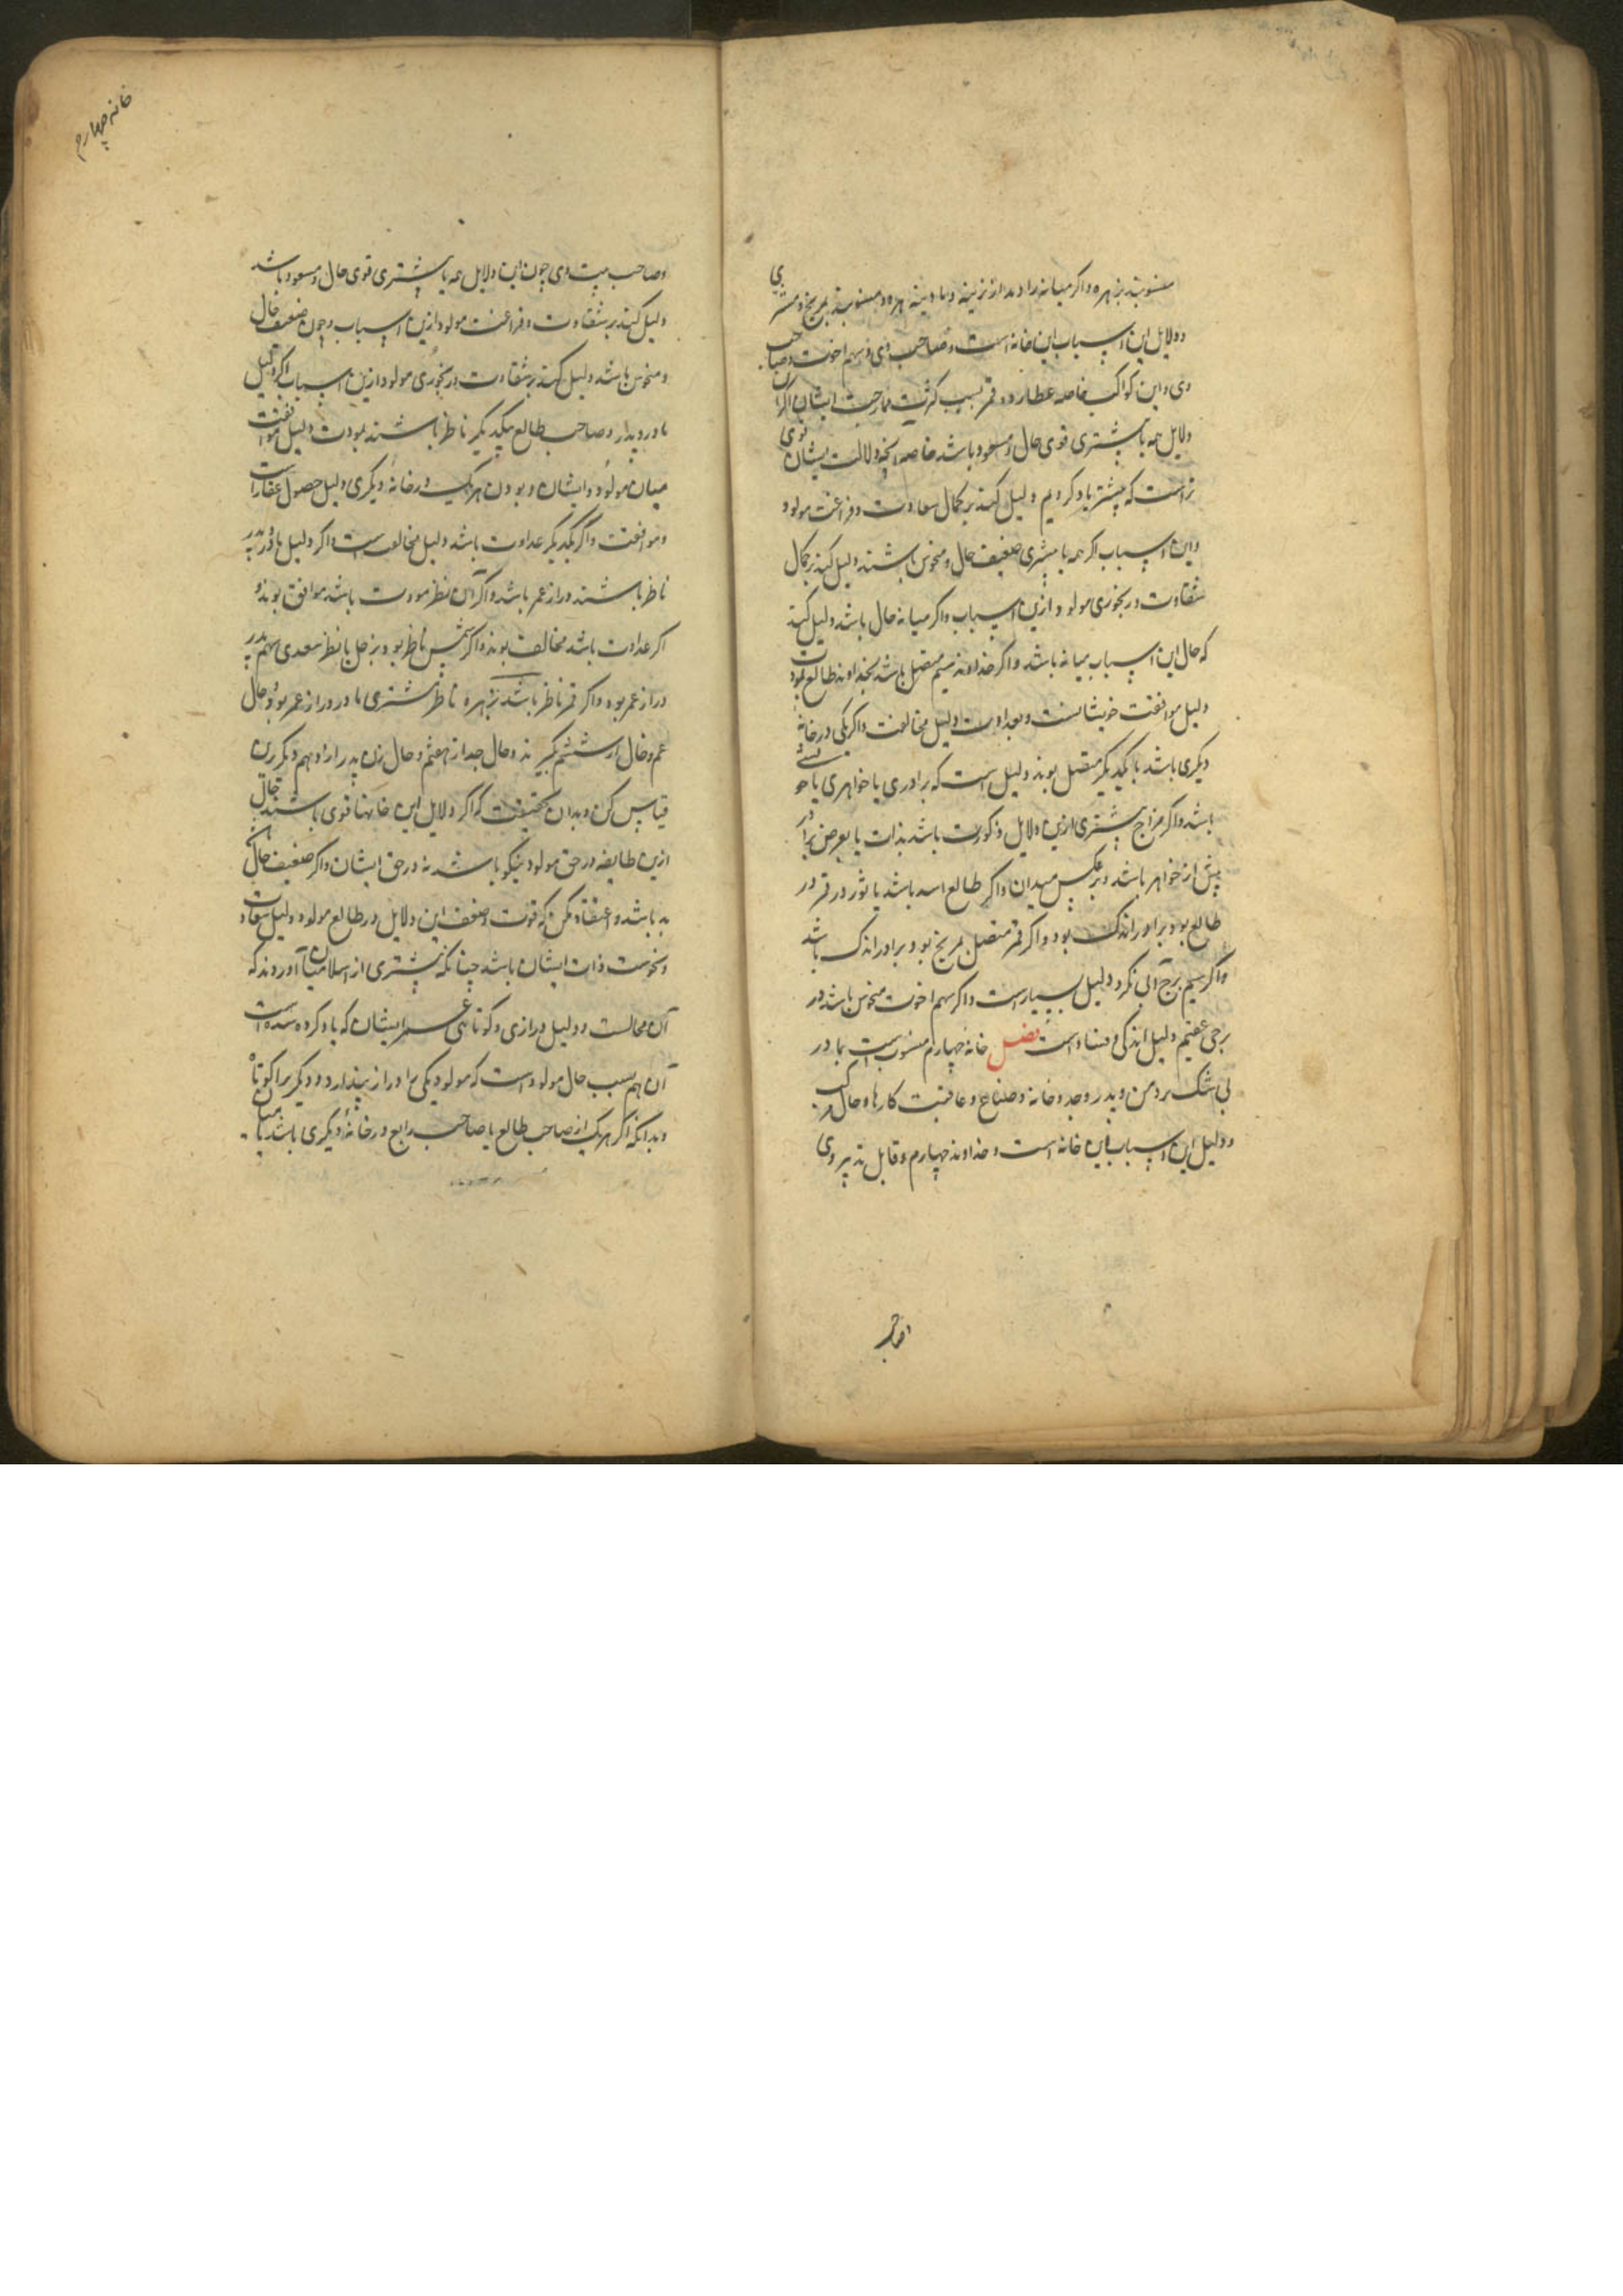 منسوبند بزهره و اگر میانه زاد بد از نرینه و مادینه بهره و منسوبند بمریخ و مشتری
و دلایل این اسباب این خانه است و صاحب وی و سهم اخوت و صاحب
وی و این کواکب خاصه عطارد و قمر بسبب کثرت ممازجت ایشان اگر آن
دلایل همه یا بیشتری قوی حال و مسعود باشد خاصه آنچه دلالت یشان قوی
تر است که پیشتر یاد کردیم دلیل کند بر کمال سعادت و فراغت مولود
و این اسباب اگر همه یا بیشتری ضعیف حال و منحوس باشند دلیل کند بر کمال
شقاوت و رنجوری مولود ازین اسباب و اگر میانه حال باشد دلیل کند
که حال این اسباب میانه باشد و اگر خداوند سیم متصل باشد بخداوند طالع بمودت
دلیل موافقت خویشانست و بعداوت دلیل مخالفت و اگر یکی در خانهٔ
دیگری باشد یا بیکدیگر متصل بوند دلیل است که برادری یا خواهری یا خویشی
باشد و اگر مزاج بیشتری ازین دلایل ذکورت باشد بذات یا بعرض برادر
پیش از خواهر باشد و بر عکس میدان و اگر طالع اسد باشد یا ثور و قمر در
طالع بود برادر اندک بود و اگر قمر متصل بمریخ بود برادر اندک باشد
و اگر سیم برج آبی نکرد دلیل بسیارست و اگر سهم اخوت منحوس باشد در
برجی عقیم دلیل اندکی و فساد است فصل خانهٔ چهارم منسوب است بمادر
بی شک نزد من و پدر و جد و خانه و ضیاع و عاقبت کارها و حال مرگ
و دلیل این اسباب این خانه است و خداوند چهارم و قابل تدبیر وی
وصاحب
خانه چهارم
و صاحب بیت وی چون این دلایل همه یا بیشتری قوی حال و مسعود باشد
دلیل کند بر شقاوت و فراغت مولود ازین اسباب و چون ضعیف حال
و منحوس باشد دلیل کند بر شقاوت و رنجوری مولود ازین اسباب اگر دلیل
مادر و پدر و صاحب طالع بیکدیگر ناظر باشند بمودت دلیل موافقت
میان مولود و ایشان و بودن هر یک در خانهٔ دیگری دلیل حصول عقارات
و موافقت و اگر بیکدیگر عداوت باشد دلیل مخالفت است و اگر دلیل مادر و پدر
ناظر باشند دراز عمر باشد و اگر آن نظر مودت باشد موافق بوند و
اگر عداوت باشد مخالف بوند و اگر شمس ناظر بود بزحل یا نظر سعدی بسهم پدر
دراز عمر بود و اگر قمر ناظر باشد بزهره ناظر مشتری مادر دراز عمر بود و حال
عم و خال از ششم گیرند و حال جد از هفتم و حال زن پدر را و هم دیگر برین
قیاس کن و بدان بحقیقت که اگر دلایل این خانها قوی باشند حال
ازین طایفه در حق مولود نیکو باشد نه در حق ایشان و اگر ضعیف حال باشد
بد باشد و اعتقاد مکن که قوت و ضعف این دلایل در طالع مولود دلیل سعادت
و نحوست ذات ایشان باشد چنانکه بیشتری از اسلامیان آوردند که
آن محالست و دلیل درازی و کوتاهی عمر ایشان که یاد کرده شده است
آن هم بسبب حال مولود است که مولود یکی را دراز پندارد و دیگری را کوتاه
و بدانکه اگر هر یک از صاحب طالع یا صاحب رابع در خانهٔ دیگری باشد یا میان